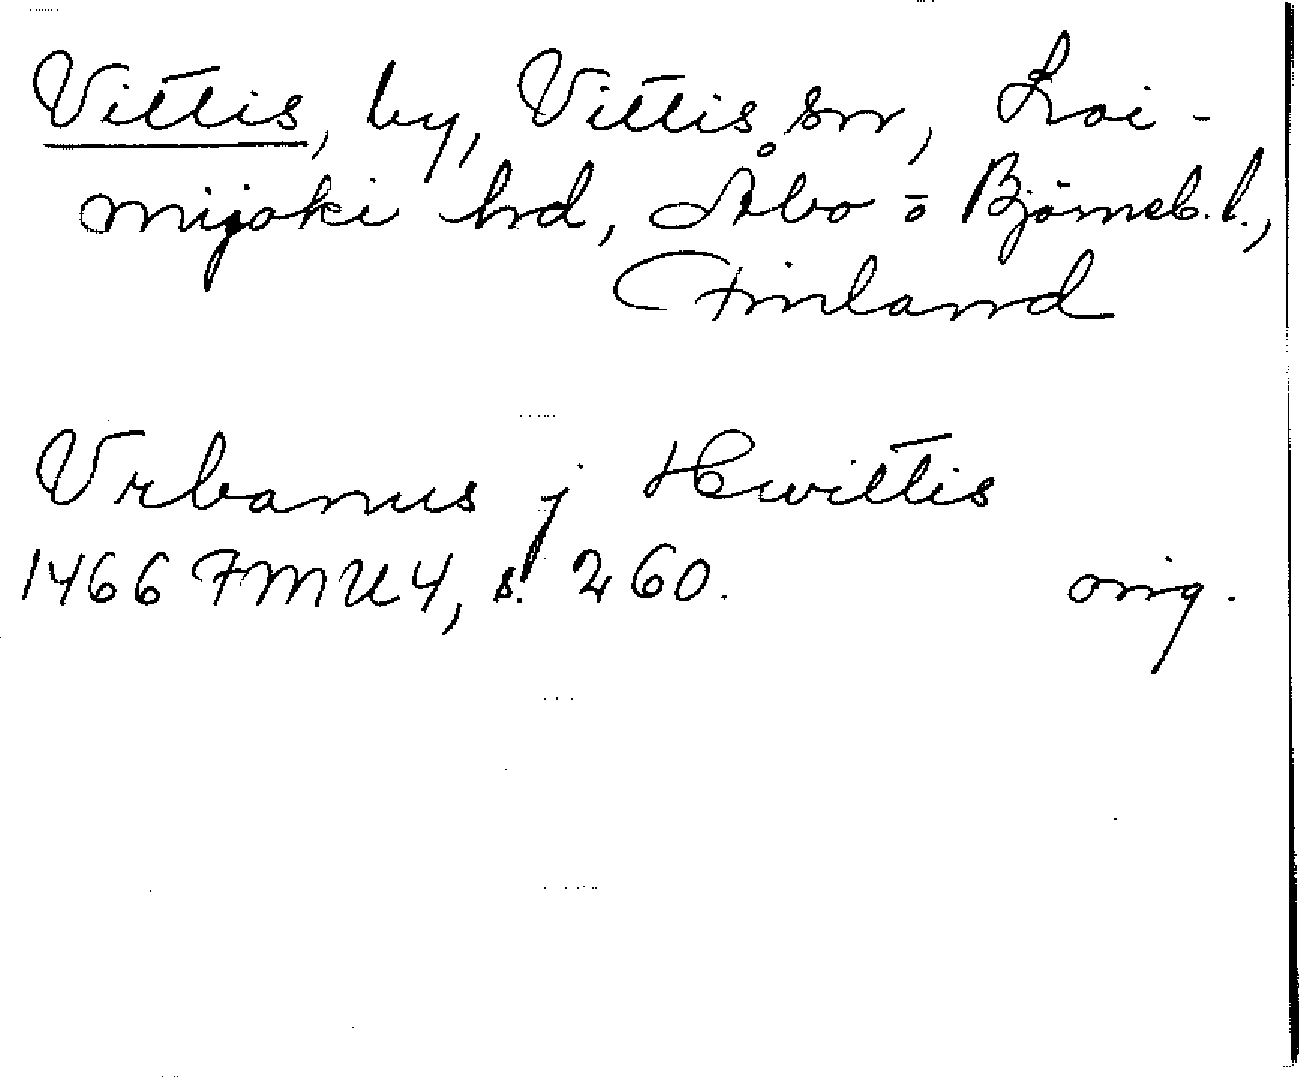 Vittis, by, Vittis sn, Loi-
mijoki hd, Åbo o Björneb. l.,
Finland
Vrbanus j Hwittis
1466 FMU 4, s. 260. orig.